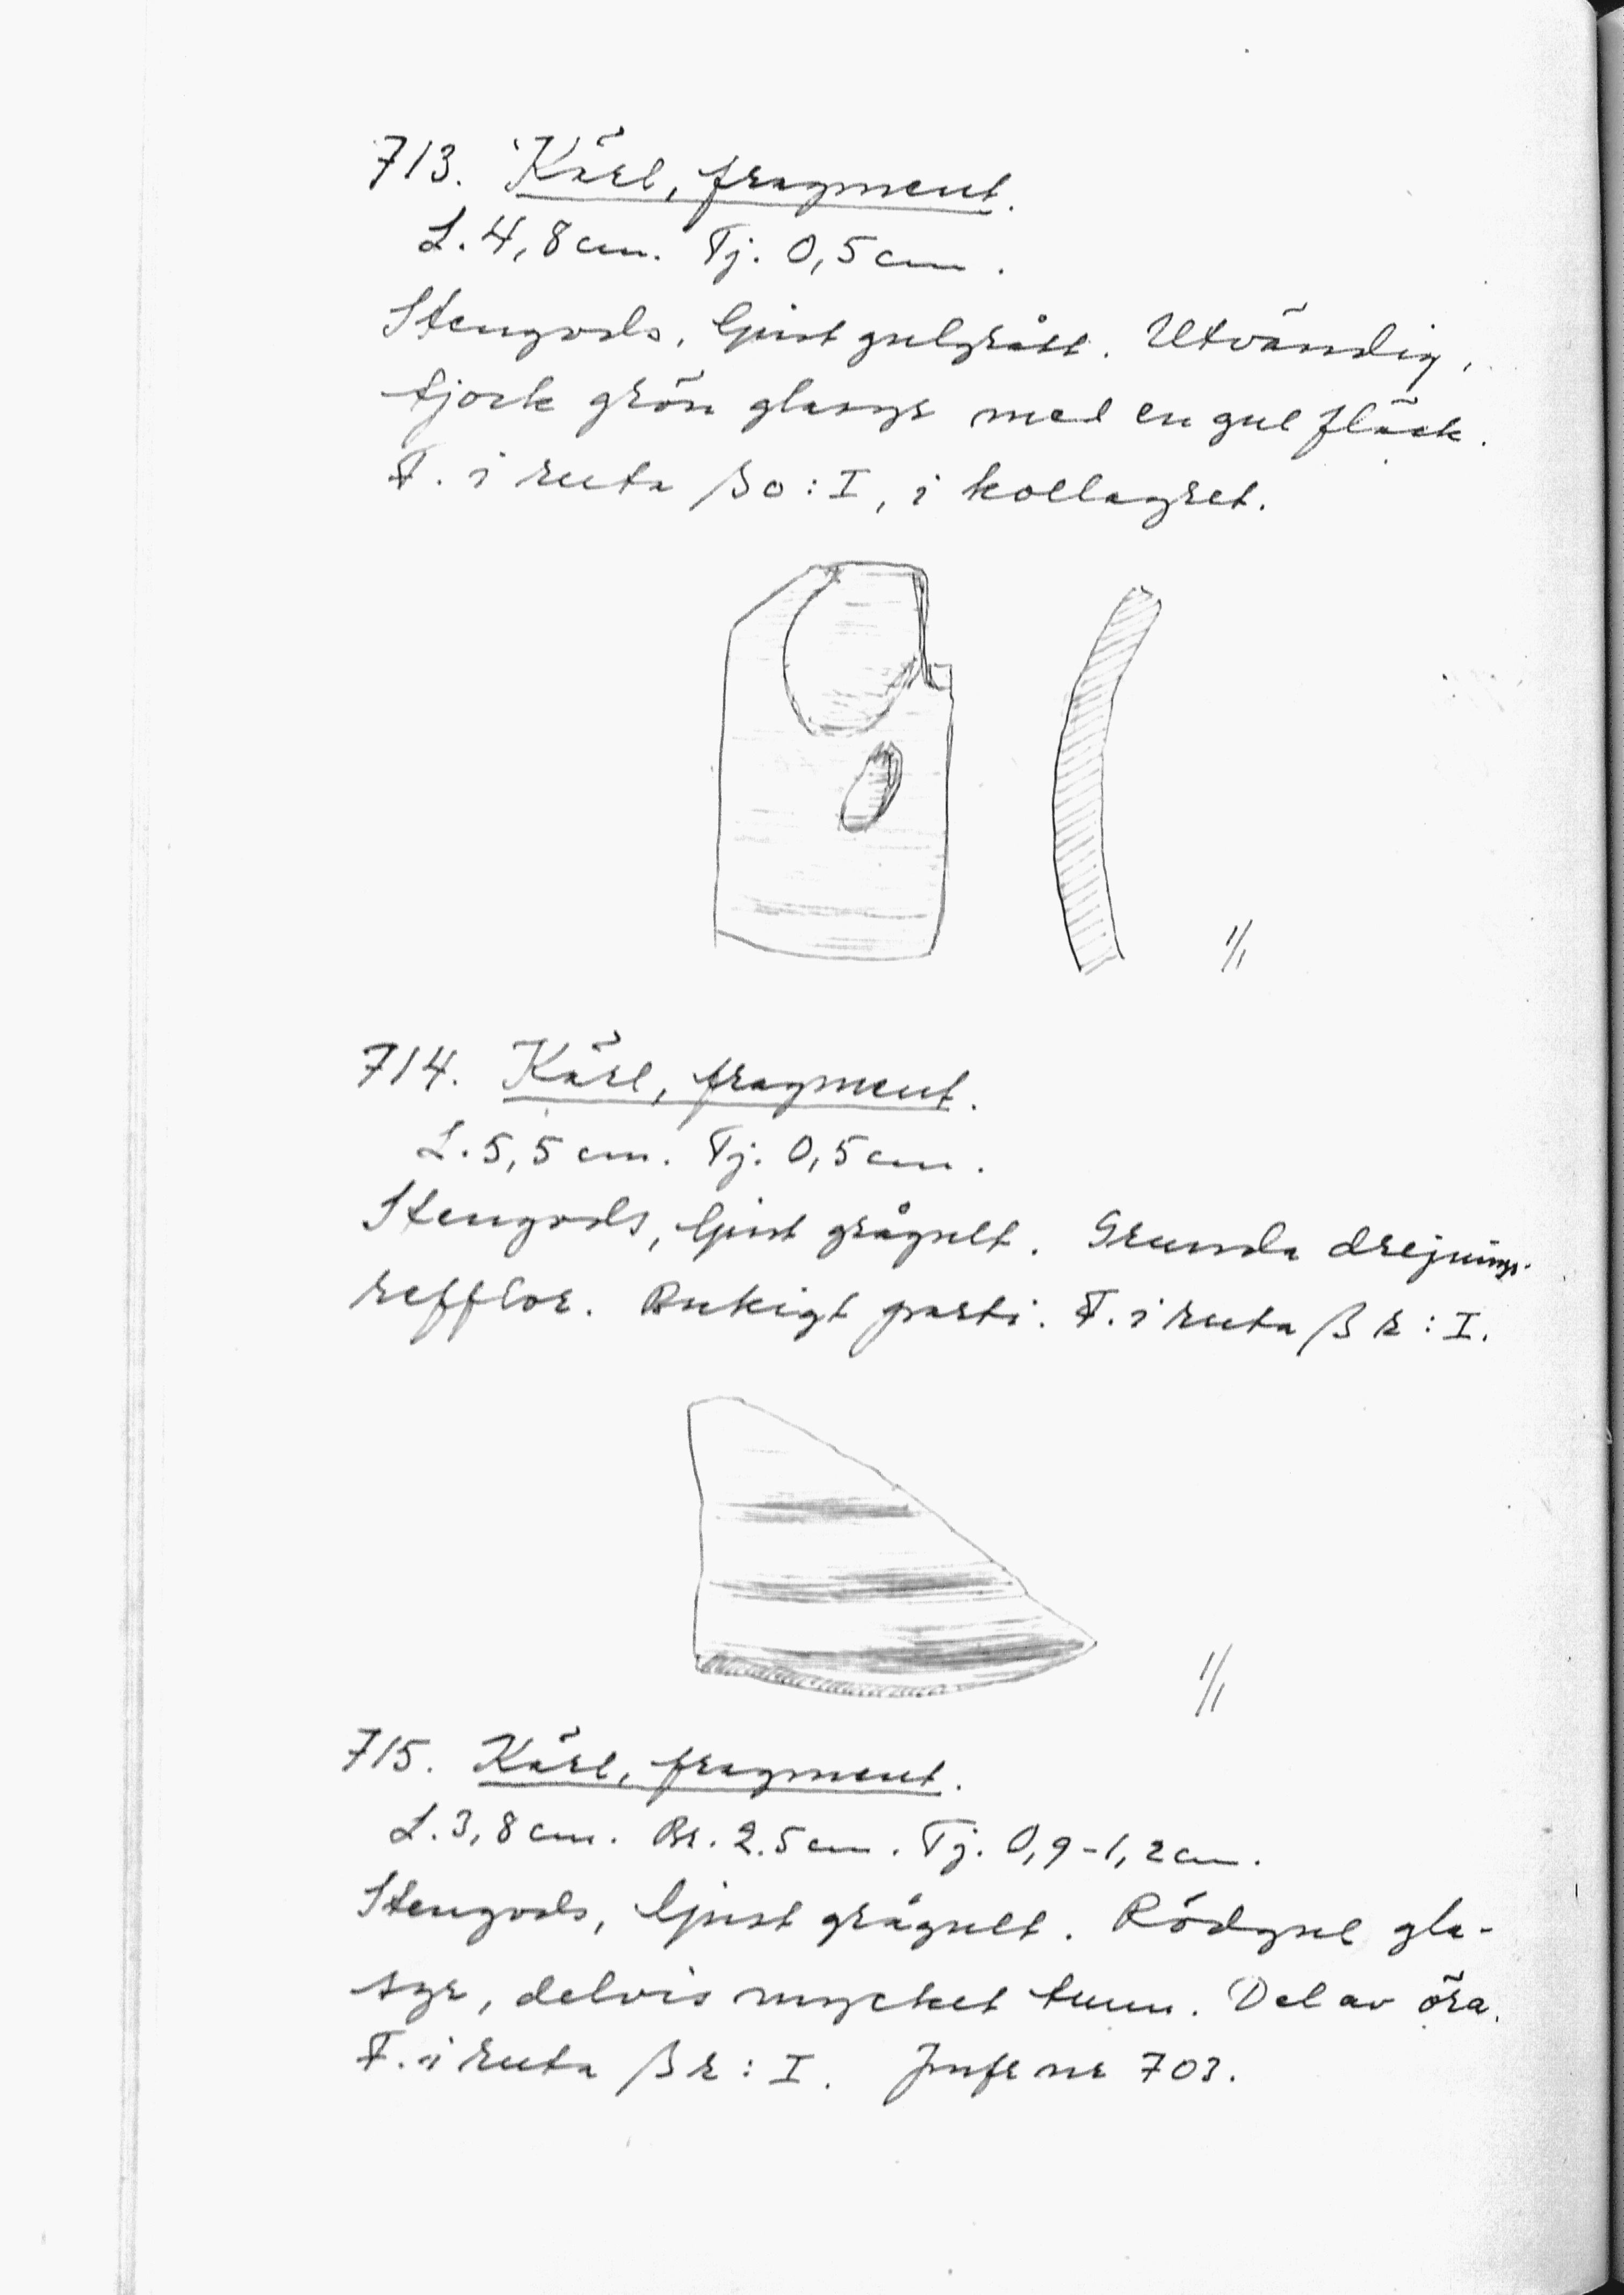 713. Kärl, fragment.
L. 4,8 cm. Tj. 0,5 cm.
Stengods, ljust gulgrått. Utvändig,
tjock grön glasyr med en gul fläck.
F. i ruta β o : I, i kollagret.
1/1
714. Kärl, fragment.
L. 5,5 cm. Tj. 0,5 cm.
Stengods, ljust grågult. Grunda drejnings-
refflor. Bukigt parti. F. i ruta β r : I.
1/1
715. Kärl, fragment.
L. 3,8 cm. Br. 2.5 cm. Tj. 0,9-1,2 cm.
Stengods, ljust grågult. Rödgul gla-
syr, delvis mycket tunn. Del av öra.
F. i ruta β r : I. Jmfr nr 703.